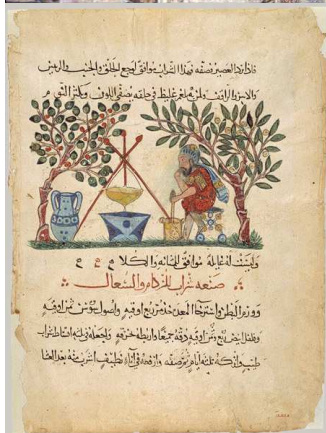 فاذا برد العصير فصفه فهذا الشراب موافق لوجع الحلق والجنب والريش
والاسر والرافف ولمن به بلغم غليظ في حلقه يصفي اللون ويكثر النوم
وليتنفس له غايلة موافق للمثانة والكلا
صنعه شراب للزكام والسعال
وورم البطن واسترخا المعدة خذ مر ربع اوقيه واصول سوسن ثمن اوقيه
وفلفل ابيض ربع وثمن اوقيه دقه جميعا واربطه بخرقه واجعله في ثلثه اقساط شراب
طيب واتركه ثلثه ايام ثم صفه وارفعه في اناء نظيف اشربه بعد العشا